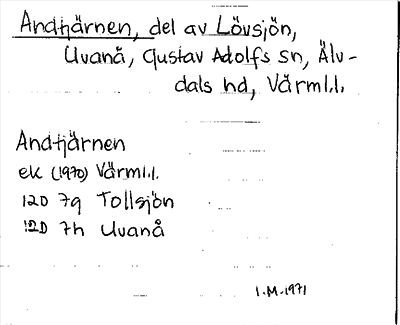 Andtjärnen, del av Lövsjön,
Uvanå, Gustav Adolfs sn, Älv-
dals hd, Värml.l.
Andtjärnen
ek (1970) Värml.l.
12D 7g Tollsjön
12D 7h Uvanå
I.M. 1971